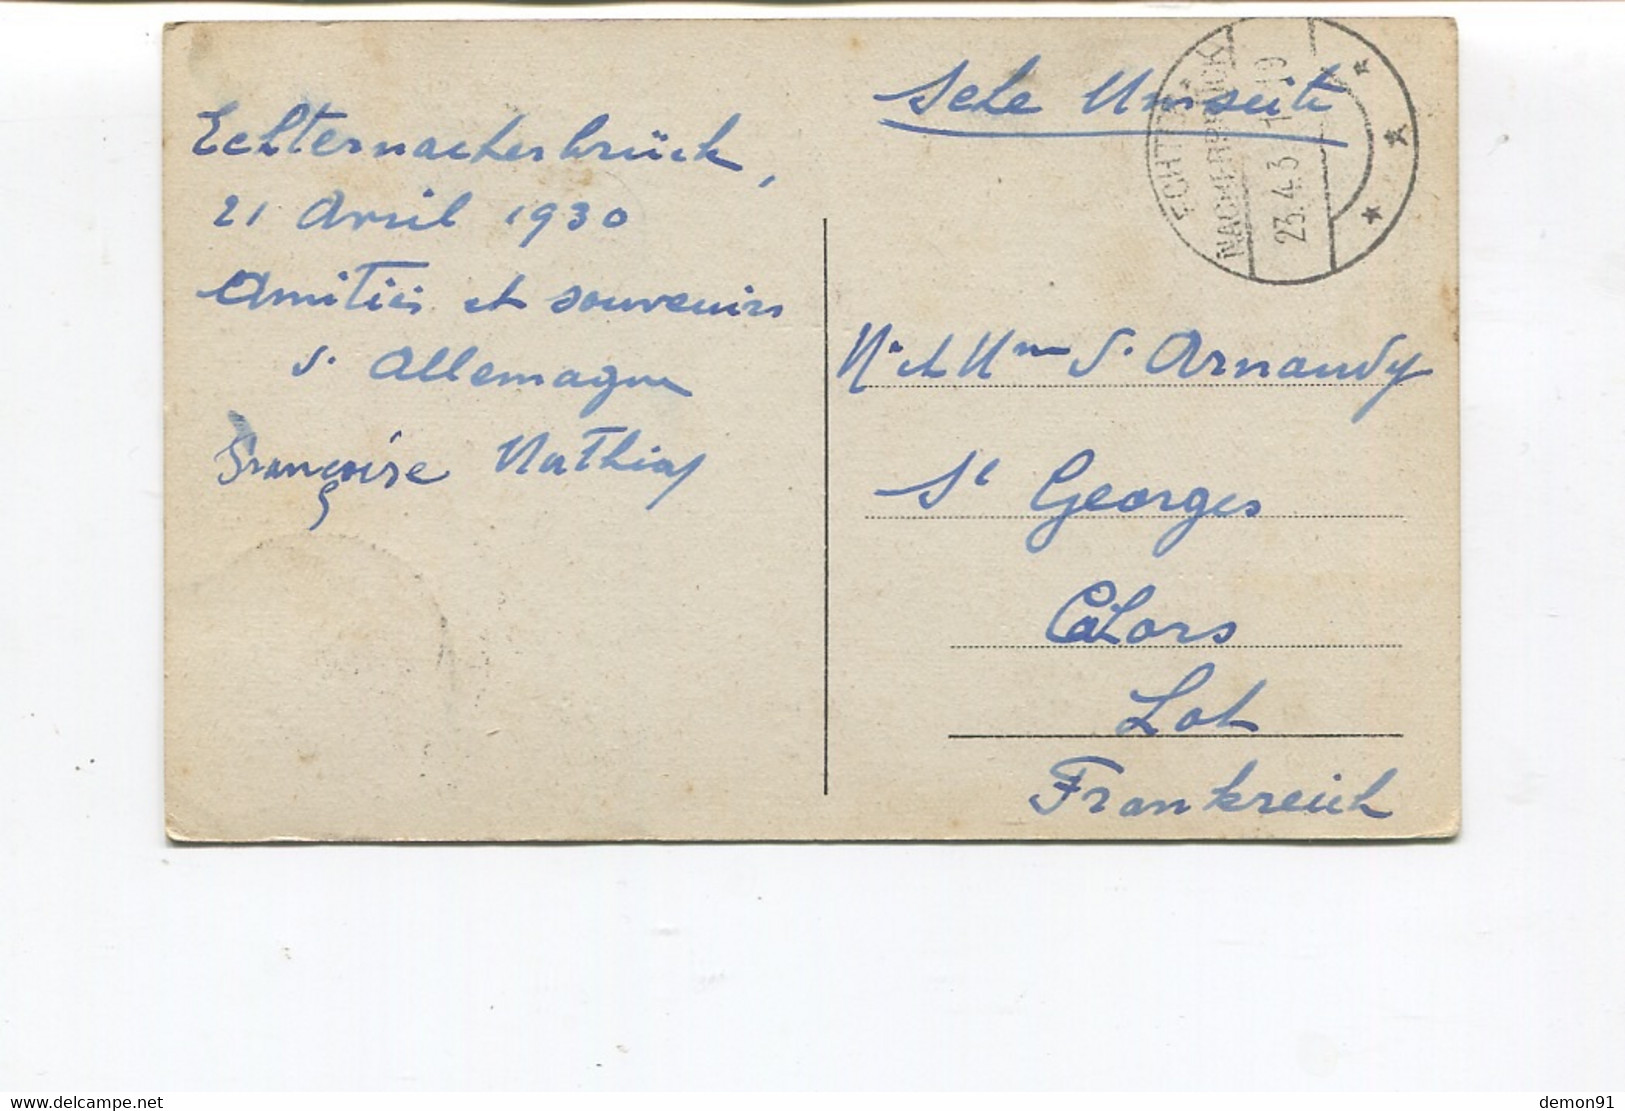 Echternacherbrück,
21 Avril 1930
Amitiés et souvenirs
d'Allemagne
Françoise Mathias
Sehe Umseite
ECHTER
NACHERBRÜCK
23.4.3
M. et Mme S. Arnaudy
St Georges
Cahors
Lot
Frankreich
delcampe.net
demon91